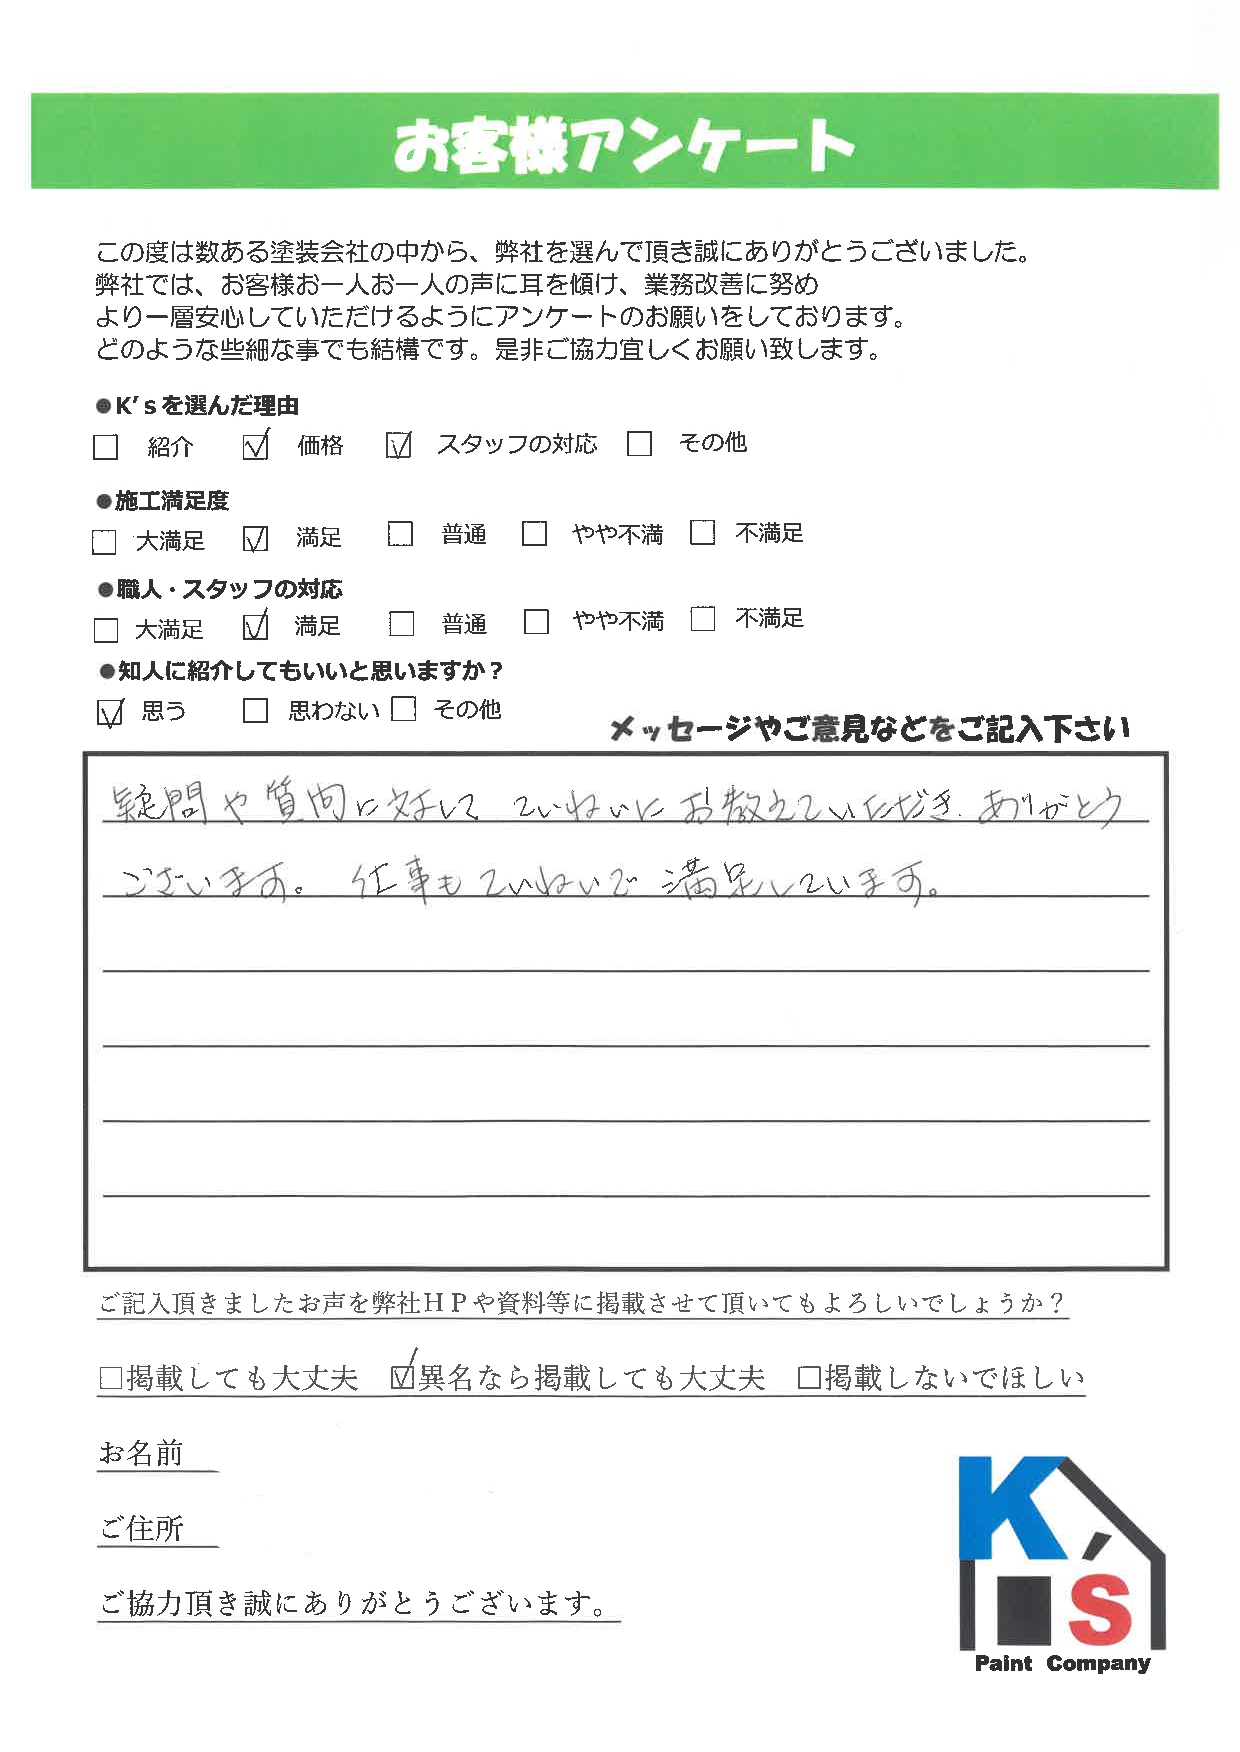 お客様アンケート
この度は数ある塗装会社の中から、弊社を選んで頂き誠にありがとうございました。
弊社では、お客様お一人お一人の声に耳を傾け、業務改善に努め
より一層安心していただけるようにアンケートのお願いをしております。
どのような些細な事でも結構です。是非ご協力宜しくお願い致します。
●K’sを選んだ理由
□ 紹介 ☑ 価格 ☑ スタッフの対応 □ その他
●施工満足度
□ 大満足 ☑ 満足 □ 普通 □ やや不満 □ 不満足
●職人・スタッフの対応
□ 大満足 ☑ 満足 □ 普通 □ やや不満 □ 不満足
●知人に紹介してもいいと思いますか？
☑ 思う □ 思わない □ その他
メッセージやご意見などをご記入下さい
疑問や質問に対して ていねいにお教えていただき、ありがとう
ございます。 仕事もていねいで満足しています。
ご記入頂きましたお声を弊社ＨＰや資料等に掲載させて頂いてもよろしいでしょうか？
□掲載しても大丈夫 ☑異名なら掲載しても大丈夫 □掲載しないでほしい
お名前
ご住所
ご協力頂き誠にありがとうございます。
K's
Paint Company